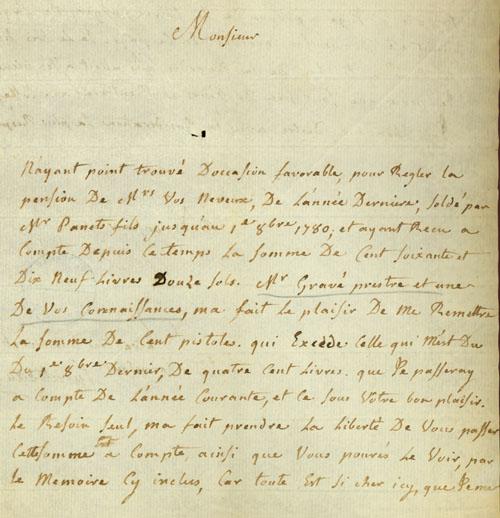 Monsieur
N'ayant point trouvé D'occasion favorable, pour Regler la
pension De Mrs Vos Neveux, De L'année Derniere, soldé par
Mr Panets fils jusqu'au 1er 8bre 1780, et ayant Recu a
Compte Depuis Ce temps La somme De Cent soixante et
Dix Neuf Livres Douze sols. Mr Gravé prestre et une
De Vos Connaissances, ma fait le plaisir De Me Remettre
La somme De Cent pistoles. qui Excède Celle qui M'est Du
Du 1er 8bre Dernier, De quatre Cent Livres. que Je passeray
a Compte De L'année Courante, et Ce sous Votre bon plaisir.
Le Besoin seul, ma fait prendre La Liberté De Vous passer
Cette somme a Compte, ainsi que Vous pourés Le Voir, par
le Memoire Cy inclus, Car toute Est si cher icy, que